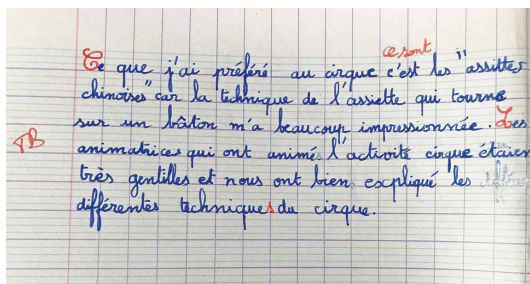 ce sont
Ce que j'ai préféré au cirque c'est les "assittes
chinoises" car la technique de l'assiette qui tourne
sur un bâton m'a beaucoup impressionnée. Les
TB
animatrices qui ont animés l'activité cirque étaien
très gentilles et nous ont bien expliqué les
différentes techniques du cirque.